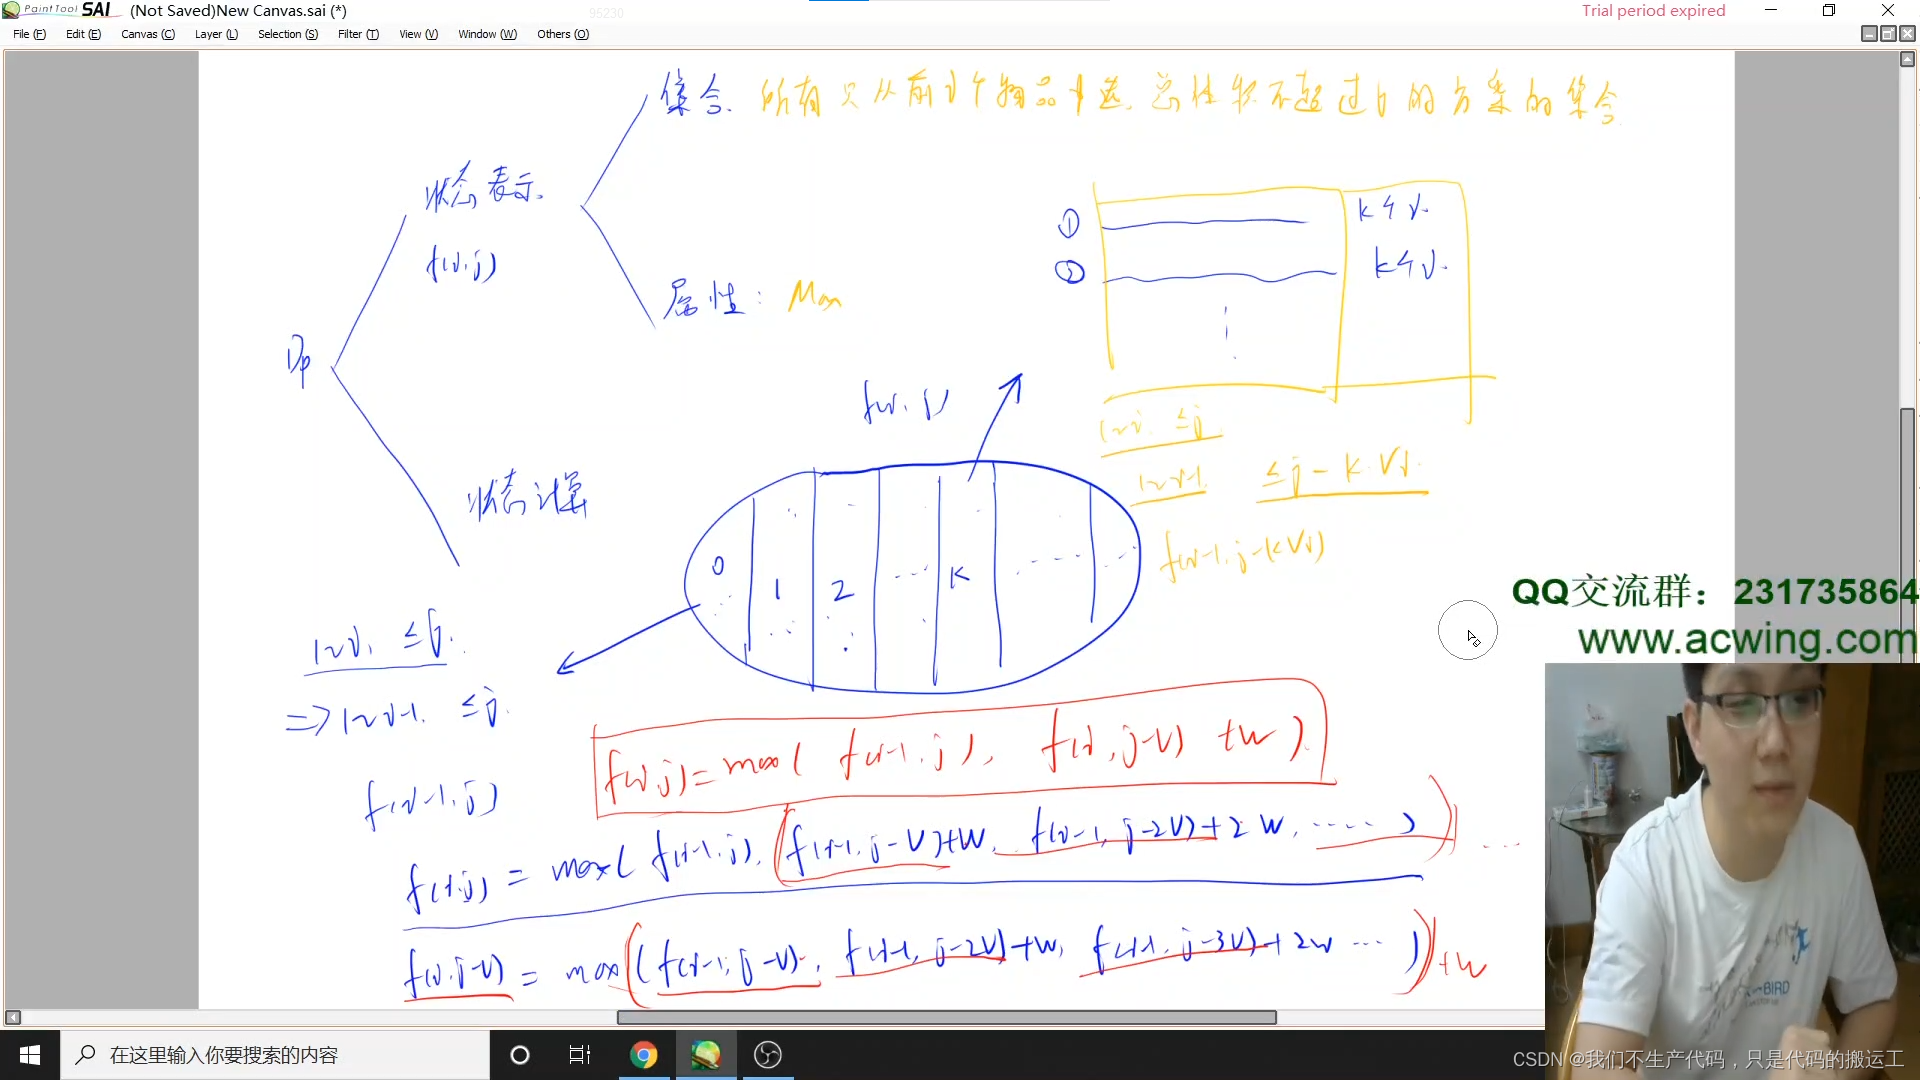 PaintTool SAI (Not Saved)New Canvas.sai (*)
95230
Trial period expired
File (F) Edit (E) Canvas (C) Layer (L) Selection (S) Filter (T) View (V) Window (W) Others (O)
集合. 所有只从前i个物品中选, 总体积不超过j的方案的集合
状态表示.
f(i,j)
① k个i.
② k个i.
属性: Max
Dp
f(i,j)
1~i, ≤j
1~i-1. ≤j-k·Vi.
状态计算
f(i-1, j-kVi)
0 1 2 ... k ...
QQ交流群：231735864
www.acwing.com
1~i, ≤j.
⇒ 1~i-1. ≤j.
f(i,j)=max( f(i-1,j), f(i,j-v) +w ).
f(i-1,j)
f(i,j) = max( f(i-1,j), f(i-1,j-v)+w, f(i-1,j-2v)+2w, ...... )
f(i,j-v) = max( f(i-1,j-v), f(i-1,j-2v)+w, f(i-1,j-3v)+2w ... ) +w
BIRD
在这里输入你要搜索的内容
CSDN @我们不生产代码，只是代码的搬运工